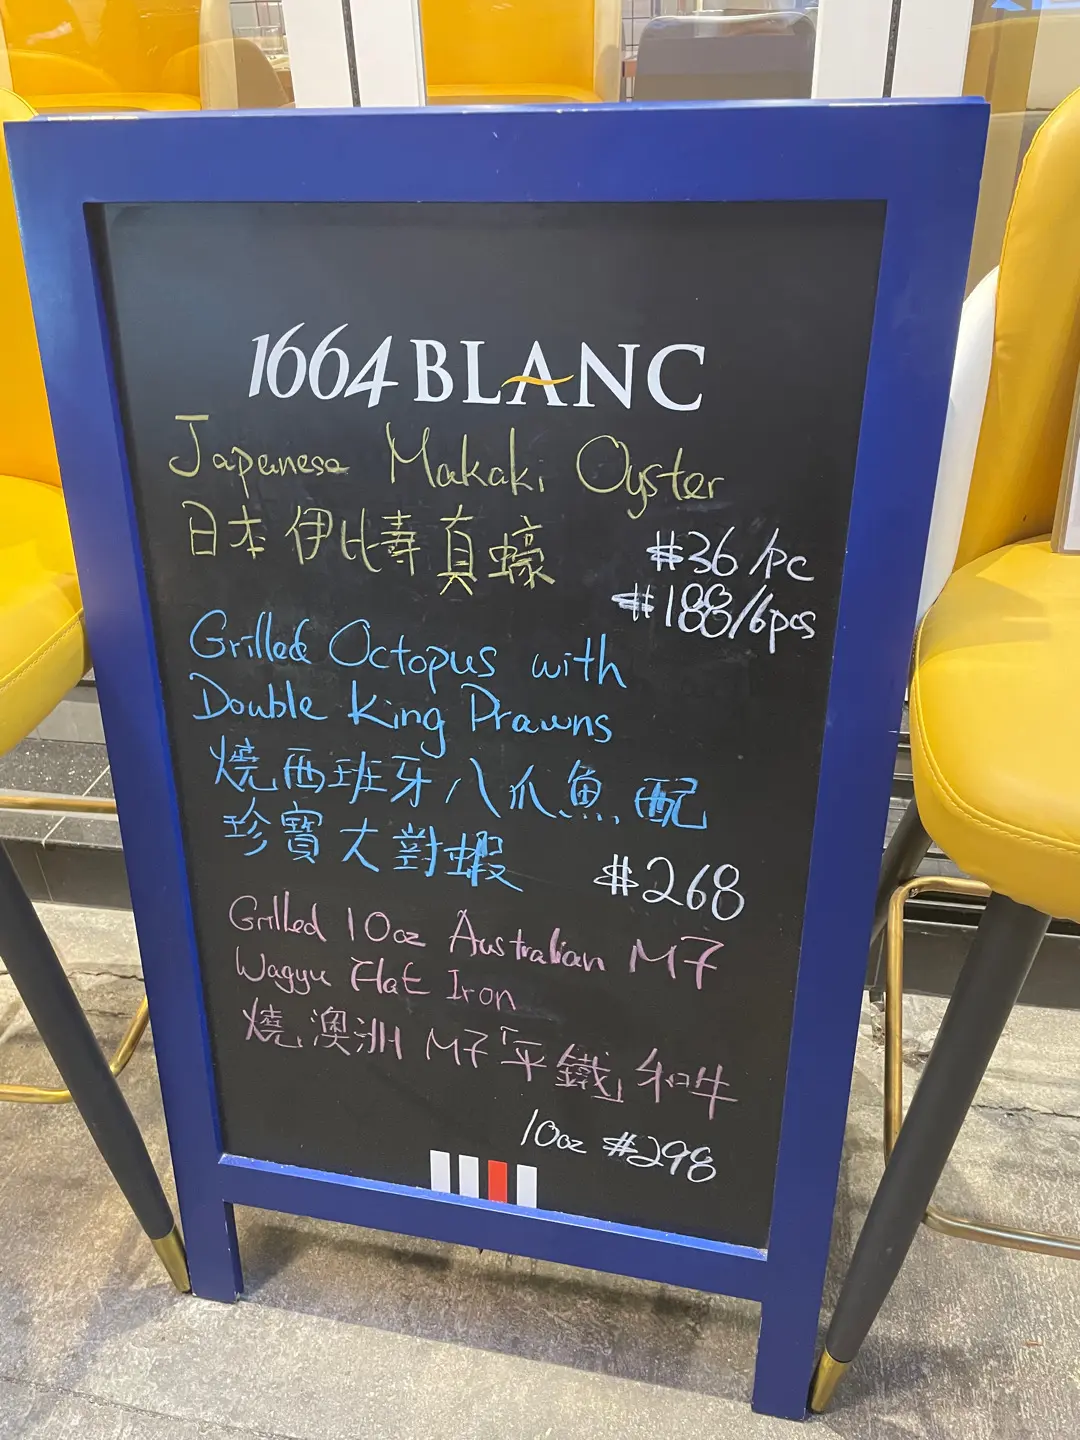 1664 BLANC
Japanese Makaki Oyster
日本伊比壽真蠔
$36/pc
$188/6pcs
Grilled Octopus with
Double King Prawns
燒西班牙八爪魚配
珍寶大對蝦 $268
Grilled 10oz Australian M7
Wagyu Flat Iron
燒澳洲M7「平鐵」和牛
10oz $298